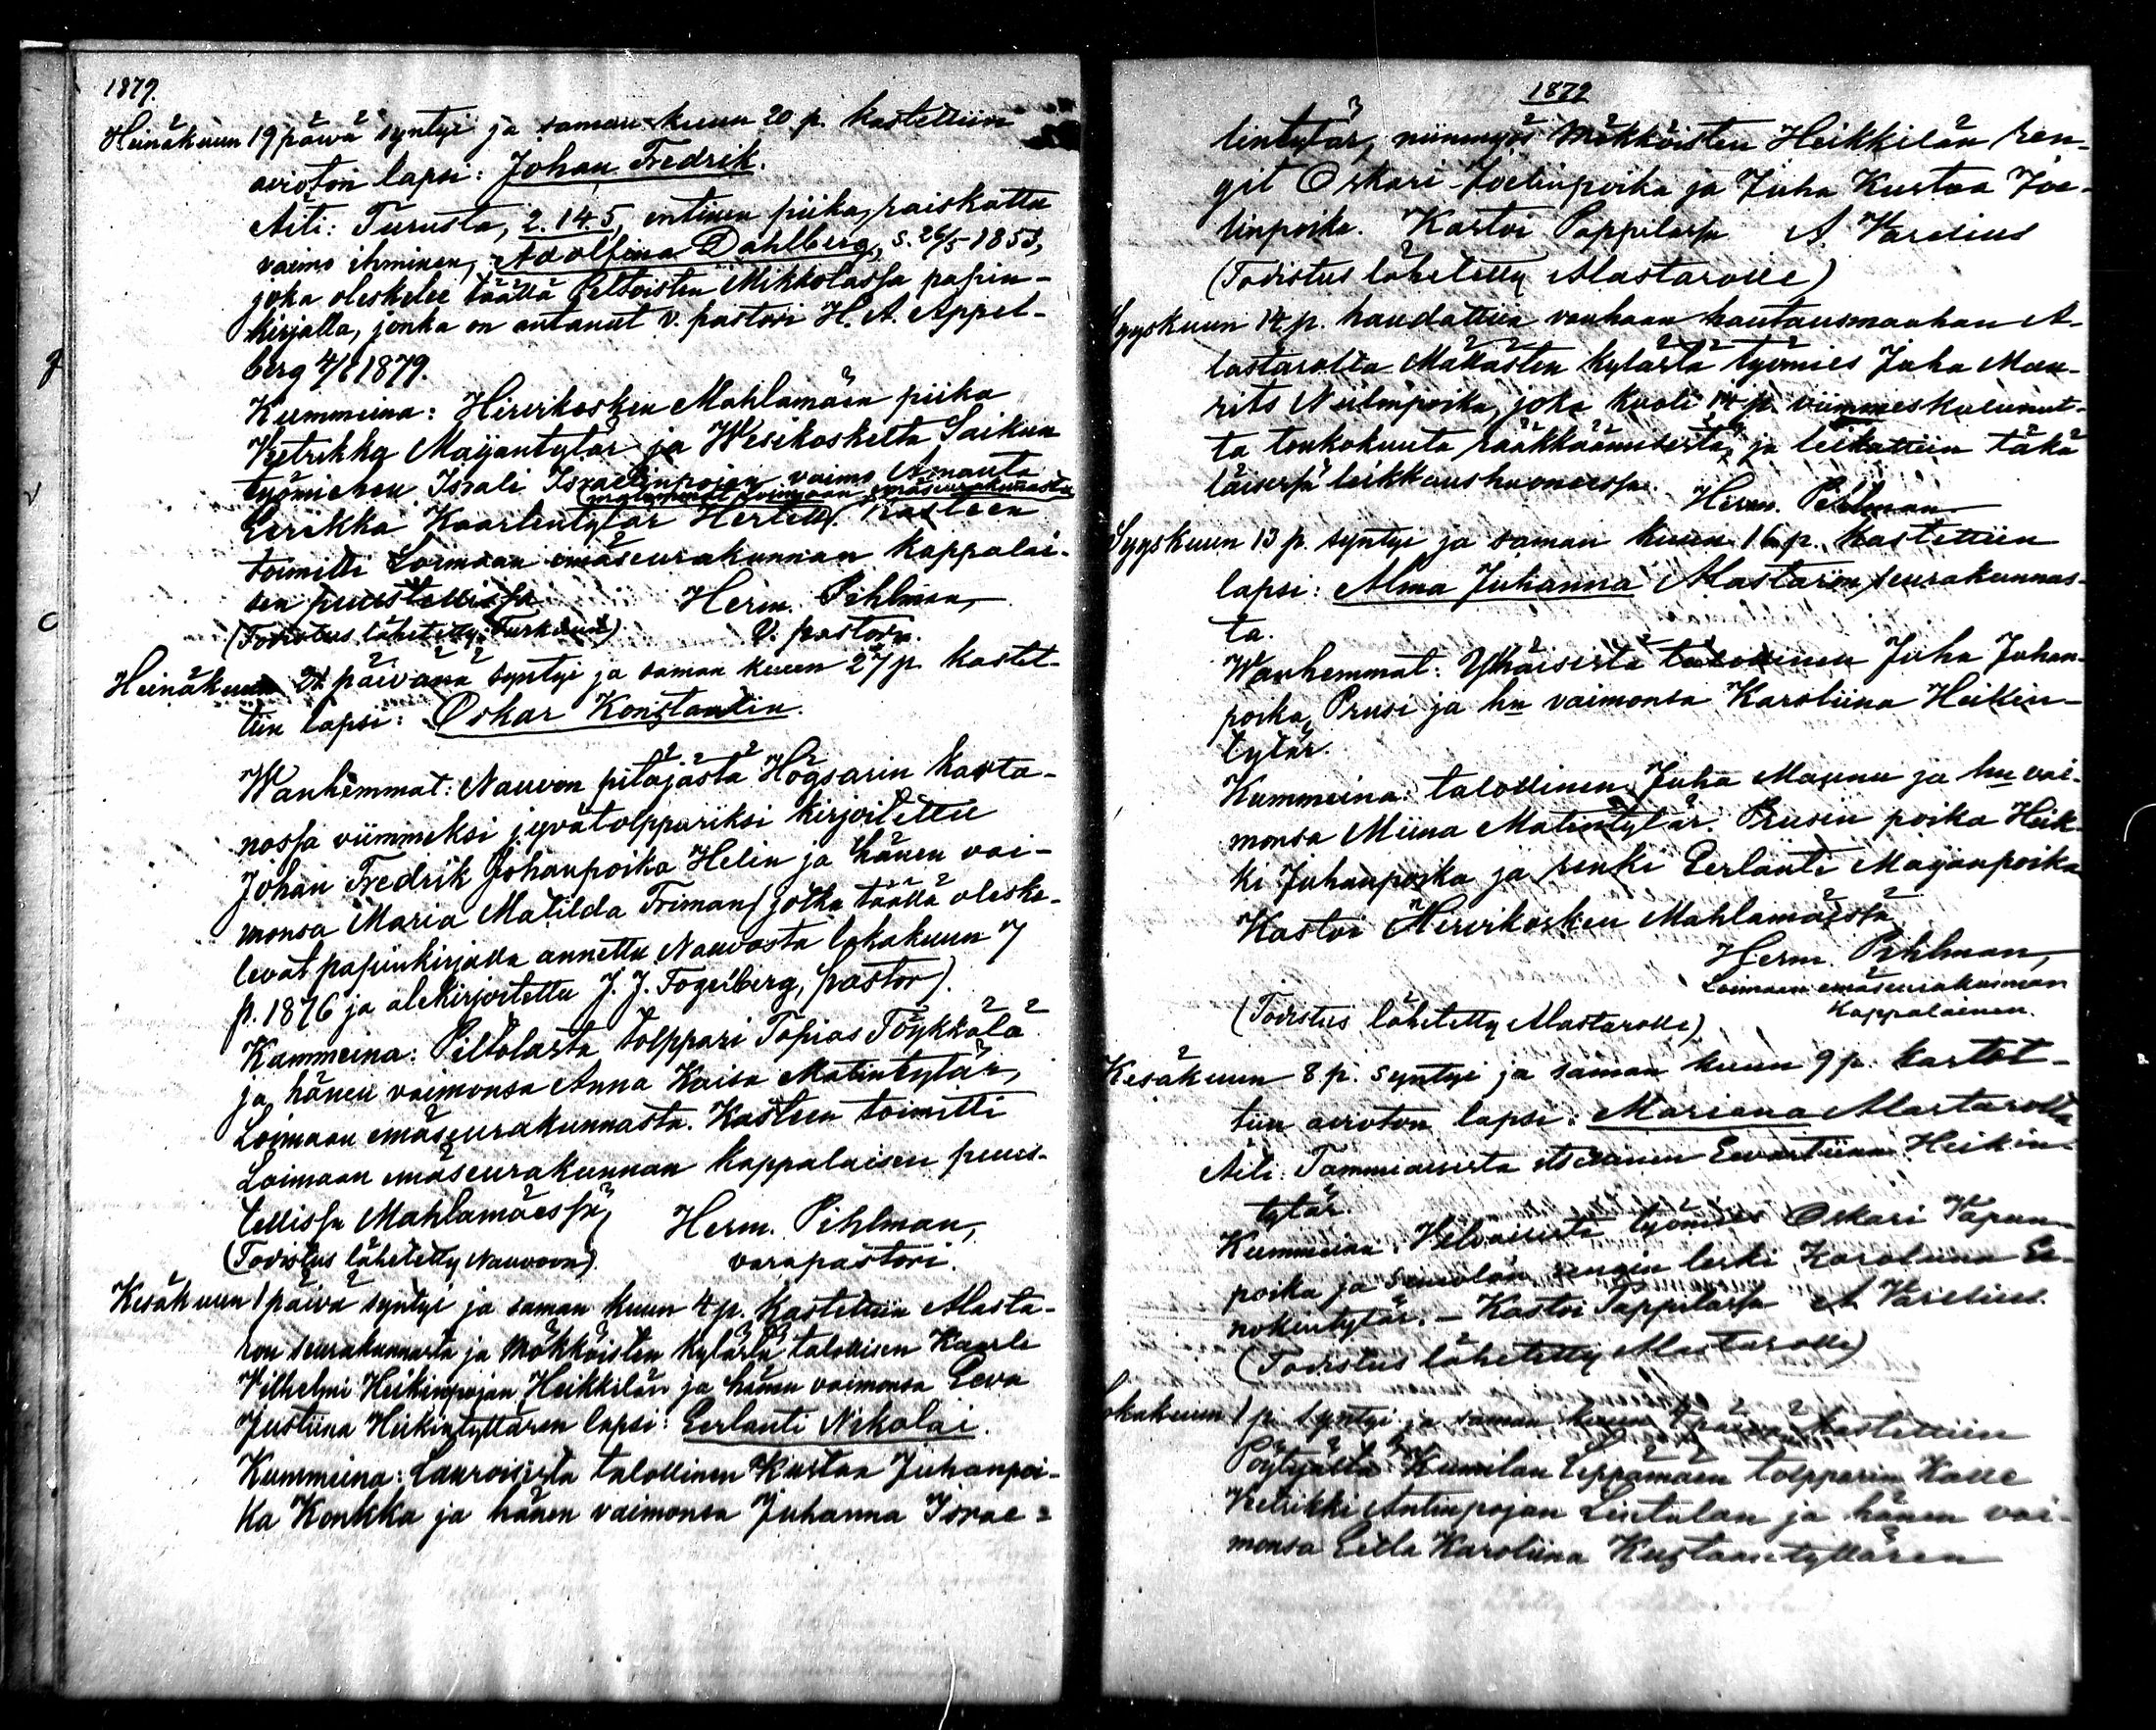 1879.
Heinäkuun 19 päivä syntyi ja saman kuun 20 p. kastettiin
avioton lapsi: Johan Fredrik.
Äiti: Turusta, 2.14.5, entinen piika, raiskattu
vaimo ihminen, Adolfina Dahlberg, s. 26/5 1853,
joka oleskelee täällä Peltoisten Mikkolassa papin-
kirjalla, jonka on antanut v. pastori H. A. Appel-
berg 4/6 1879.
Kummeina: Hirvikosken Mahlamäen piika
Vetrikka Maijantytär ja Wesikoskelta Saikun
työmiehen Israli Israelinpojan vaimo Amanta
(molemmat Loimaan emäseurakunnasta
Eerikka Kaarlentytär Hertell). Kasteen
toimitti Loimaan emäseurakunnan kappalai-
sen puustellissa Herm. Pihlman,
(Todistus lähetetty Turkuun) v. pastori.
Heinäkuun 21 päivänä syntyi ja saman kuun 27 p. kastet-
tiin lapsi: Oskar Konstantin.
Wanhemmat: Nauvon pitäjästä Högsarin karta-
nossa viimmeksi jyvätolppariksi kirjoitettu
Johan Fredrik Johanpoika Helin ja hänen vai-
monsa Maria Matilda Friman (jotka täällä oleske-
levat papinkirjalla annettu Nauvosta lokakuun 7
p. 1876 ja alekirjoitettu J. J. Fogelberg, pastor).
Kummeina: Piltolasta tolppari Topias Töykkälä
ja hänen vaimonsa Anna Kaisa Matintytär,
Loimaan emäseurakunnasta. Kasteen toimitti
Loimaan emäseurakunnan kappalaisen puus-
tellissa Mahlamäessä, Herm. Pihlman,
(Todistus lähetetty Nauvoon). varapastori.
Kesäkuun 1 päivä syntyi ja saman kuun 4 p. kastettiin Alasta-
ron seurakunnasta ja Mökköisten kylästä talollisen Kaarle
Vilhelmi Heikinpojan Heikkilän ja hänen vaimonsa Eeva
Justiina Heikintyttären lapsi: Eerlanti Nikolai.
Kummeina: Lauroisista talollinen Kustaa Juhanpoi-
ka Konkka ja hänen vaimonsa Juhanna Israe-
1879
lintytär, niinmyös Mökköisten Heikkilän ren-
git Oskari Joelinpoika ja Juha Kustaa Joe-
linpoika. Kastoi Pappilassa A. Varelius
(Todistus lähetetty Alastarolle)
Syyskuun 14 p. haudattiin vanhaan hautausmaahan A-
lastarolta Mälläisten kylästä työmies Juha Mau-
rits Neilinpoika, joka kuoli 14 p. viimmeskulunut-
ta toukokuuta rääkkäämisestä, ja leikattiin täkä
läisessä leikkaushuoneessa.
Herm. Pihlman
Syyskuun 13 p. syntyi ja saman kuun 16 p. kastettiin
lapsi: Alma Juhanna Alastaron seurakunnas-
ta.
Wanhemmat: Ykäisistä talollinen Juha Juhan-
poika Prusi ja hn vaimonsa Karoliina Heikin-
tytär.
Kummeina: talollinen Juha Maunu ja hn vai-
monsa Miina Matintytär. Prusin poika Heik-
ki Juhanpoika ja renki Eerlanti Maijanpoika
Kastoi Hirvikosken Mahlamäessä
Herm. Pihlman,
Loimaan emäseurakunnan
Kappalainen.
(Todistus lähetetty Alastarolle)
Kesäkuun 8 p. syntyi ja saman kuun 9 p. kastet-
tiin avioton lapsi: Mariana Alastarolta
Äiti: Tammiaisista itsellinen Eevastiina Heikin-
tytär.
Kummeina: Vilvaisista työmies Oskari Vapun-
poika ja rengin leski Karoliina Ee-
nokintytär. - Kastoi Pappilassa A Varelius.
(Todistus lähetetty Alastarolle)
Lokakuun 1 p. syntyi ja saman kuun 4 päivä kastettiin
Pöytyältä Kumilan Leppämäen tolpparin Kalle
Vetrikki Antinpojan Lintulan ja hänen vai-
monsa Eetla Karoliina Kustaantyttären